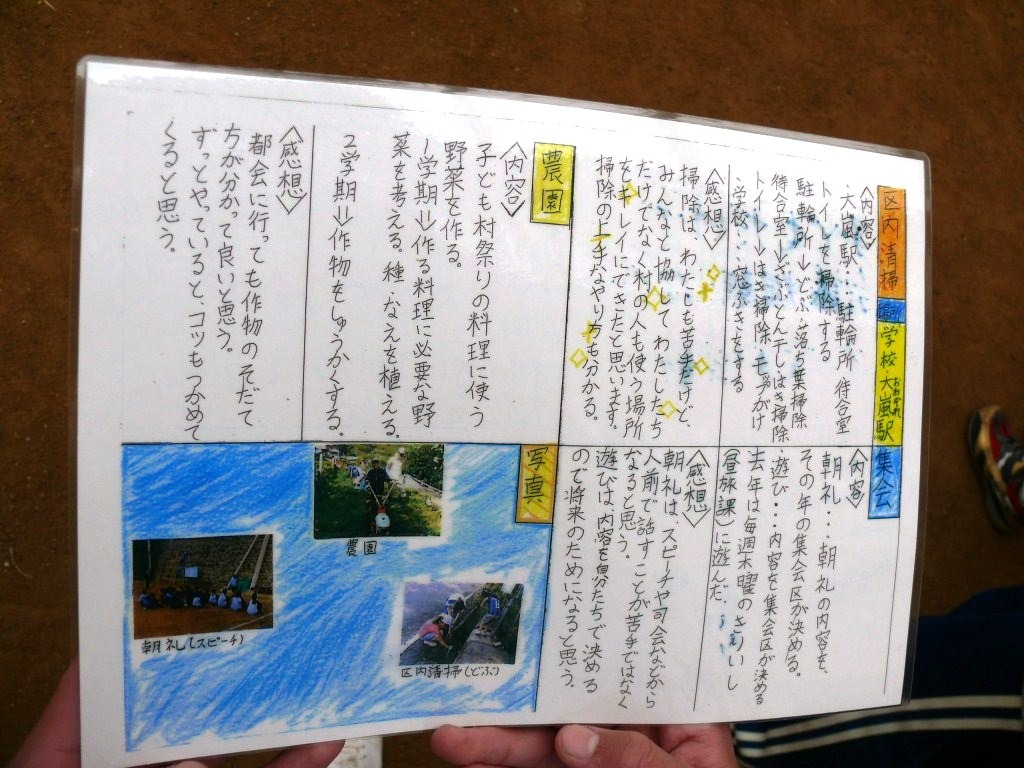 区内清掃
学校 大嵐駅
おおぞれ
〈内容〉
・大嵐駅…駐輪所 待合室
トイレを掃除する
駐輪所→どぶ 落ち葉掃除
待合室→ざぶとん干し・はき掃除
トイレ→はき掃除 モップがけ
・学校 窓ふきをする
〈感想〉
掃除は、わたしも苦手だけど、
みんなと協力してわたしたち
だけでなく村の人も使う場所
をキレイにできたと思います。
掃除の上手なやり方も分かる。
集会
〈内容〉
朝礼…朝礼の内容を、
その年の集会区が決める。
・遊び…内容を集会区が決める
去年は毎週木曜の
昼放課に遊んだ。
〈感想〉
朝礼は、スピーチや司会などから
人前で話すことが苦手ではなく
なると思う。
遊びは、内容を自分たちで決める
ので将来のためになると思う。
農園
〈内容〉
子ども村祭りの料理に使う
野菜を作る。
1学期⇒作る料理に必要な野
菜を考える。種・なえを植える。
2学期⇒作物をしゅうかくする。
〈感想〉
都会に行っても作物のそだて
方が分かって良いと思う。
ずっとやっていると、コツもつかめて
くると思う。
写真
農園
区内清掃(どぶ)
朝礼(スピーチ)